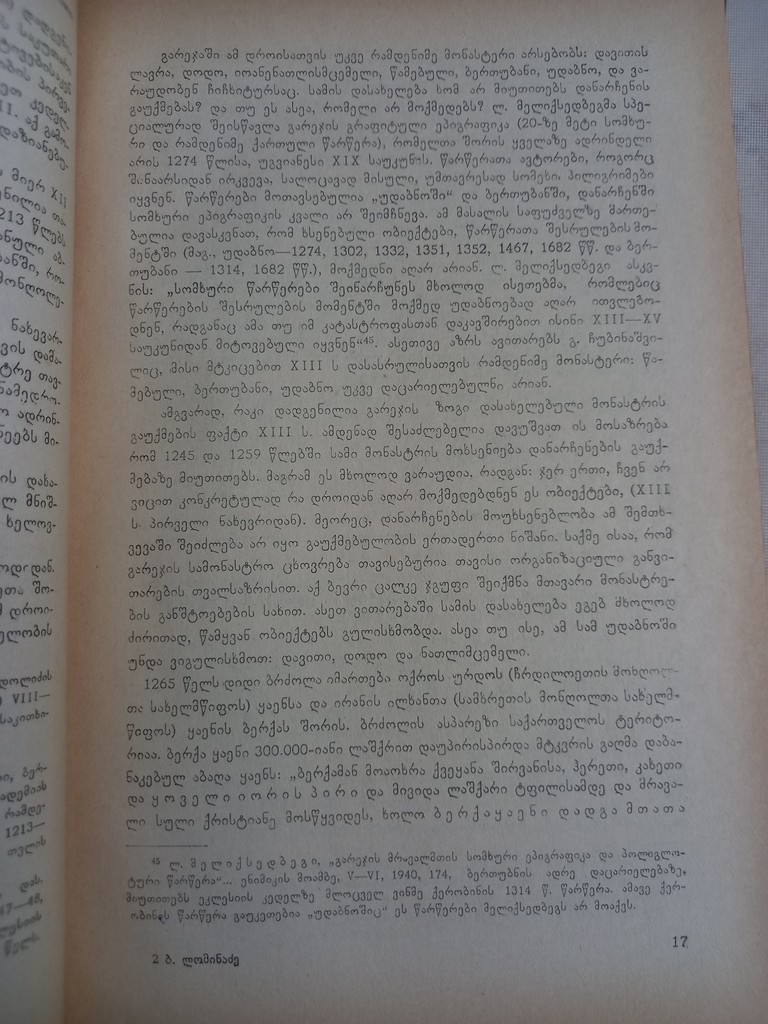 გარეჯაში ამ დროისათვის უკვე რამდენიმე მონასტერი არსებობს: დავითის
ლავრა, დოდო, იოანენათლისმცემელი, წამებული, ბერთუბანი, უდაბნო, და ვა-
რაუდობენ ჩიჩხიტურსაც. სამის დასახელება ხომ არ მიუთითებს დანარჩენის
გაუქმებას? და თუ ეს ასეა, რომელი არ მოქმედებს? ლ. მელიქსედბეგმა სპე-
ციალურად შეისწავლა გარეჯის გრაფიტული ეპიგრაფიკა (20-ზე მეტი სომხუ-
რი და რამდენიმე ქართული წარწერა), რომელთა შორის ყველაზე ადრინდელი
არის 1274 წლისა, უგვიანესი XIX საუკუნის. წარწერათა ავტორები, როგორც
შინაარსიდან ირკვევა, სალოცავად მისული, უმთავრესად სომეხი პილიგრიმები
იყვნენ. წარწერები მოთავსებულია „უდაბნოში“ და ბერთუბანში, დანარჩენში
სომხური ეპიგრაფიკის კვალი არ შეიმჩნევა. ამ მასალის საფუძველზე მართე-
ბულია დავასკვნათ, რომ ხსენებული ობიექტები, წარწერათა შესრულების მო-
მენტში (მაგ., უდაბნო—1274, 1302, 1332, 1351, 1352, 1467, 1682 წწ. და ბერ-
თუბანი — 1314, 1682 წწ.), მოქმედნი აღარ არიან. ლ. მელიქსედბეგი ასკვ-
ნის: „სომხური წარწერები შეინარჩუნეს მხოლოდ ისეთებმა, რომლებიც
წარწერების შესრულების მომენტში მოქმედ უდაბნოებად აღარ ითვლებო-
დნენ, რადგანაც ამა თუ იმ კატასტროფასთან დაკავშირებით ისინი XIII—XV
საუკუნიდან მიტოვებული იყვნენ“⁴⁵. ასეთივე აზრს ავითარებს გ. ჩუბინაშვი-
ლიც, მისი მტკიცებით XIII ს დასასრულისათვის რამდენიმე მონასტერი: წა-
მებული, ბერთუბანი, უდაბნო უკვე დაცარიელებულნი არიან.
ამგვარად, რაკი დადგენილია გარეჯის ზოგი დასახელებული მონასტრის
გაუქმების ფაქტი XIII ს. ამდენად შესაძლებელია დავუშვათ ის მოსაზრება
რომ 1245 და 1259 წლებში სამი მონასტრის მოხსენიება დანარჩენების გაუქ-
მებაზე მიუთითებს. მაგრამ ეს მხოლოდ ვარაუდია, რადგან: ჯერ ერთი, ჩვენ არ
ვიცით კონკრეტულად რა დროიდან აღარ მოქმედებდნენ ეს ობიექტები, (XIII
ს. პირველი ნახევრიდან). მეორეც, დანარჩენების მოუხსენებლობა ამ შემთხ-
ვევაში შეიძლება არ იყო გაუქმებულობის ერთადერთი ნიშანი. საქმე ისაა, რომ
გარეჯის სამონასტრო ცხოვრება თავისებურია თავისი ორგანიზაციული განვი-
თარების თვალსაზრისით. აქ ბევრი ცალკე ჯგუფი შეიქმნა მთავარი მონასტრე-
ბის განშტოებების სახით. ასეთ ვითარებაში სამის დასახელება ეგებ მხოლოდ
ძირითად, წამყვან ობიექტებს გულისხმობდა. ასეა თუ ისე, ამ სამ უდაბნოში
უნდა ვიგულისხმოთ: დავითი, დოდო და ნათლიმცემელი.
1265 წელს დიდი ბრძოლა იმართება ოქროს ურდოს (ჩრდილოეთის მონღოლ-
თა სახელმწიფოს) ყაენსა და ირანის ილხანთა (სამხრეთის მონღოლთა სახელმ-
წიფოს) ყაენის ბერქას შორის. ბრძოლის ასპარეზი საქართველოს ტერიტო-
რიაა. ბერქა ყაენი 300.000-იანი ლაშქრით დაუპირისპირდა მტკვრის გაღმა დაბა-
ნაკებულ აბაღა ყაენს: „ბერქამან მოაოხრა ქვეყანა შირვანისა, ჰერეთი, კახეთი
და ყოველი იორის პირი და მივიდა ლაშქარი ტფილისამდე და მრავა-
ლი სული ქრისტიანე მოსწყვიდეს, ხოლო ბერქა ყაენი დადგა მთათა
⁴⁵ ლ. მელიქსედბეგი, „გარეჯის მრავალმთის სომხური ეპიგრაფიკა და პოლიგლო-
ტური წარწერა“... ენიმკის მოამბე, V—VI, 1940, 174, ბერთუბნის ადრე დაცარიელებაზე,
მიუთითებს ეკლესიის კედელზე მლოცველ ვინმე ქერობინის 1314 წ. წარწერა. ამავე ქერ-
ობინეს წარწერა გაუკეთებია „უდაბნოშიც“ ეს წარწერები მელიქსედბეგს არ მოაქვს.
17
2 ბ. ლომინაძე